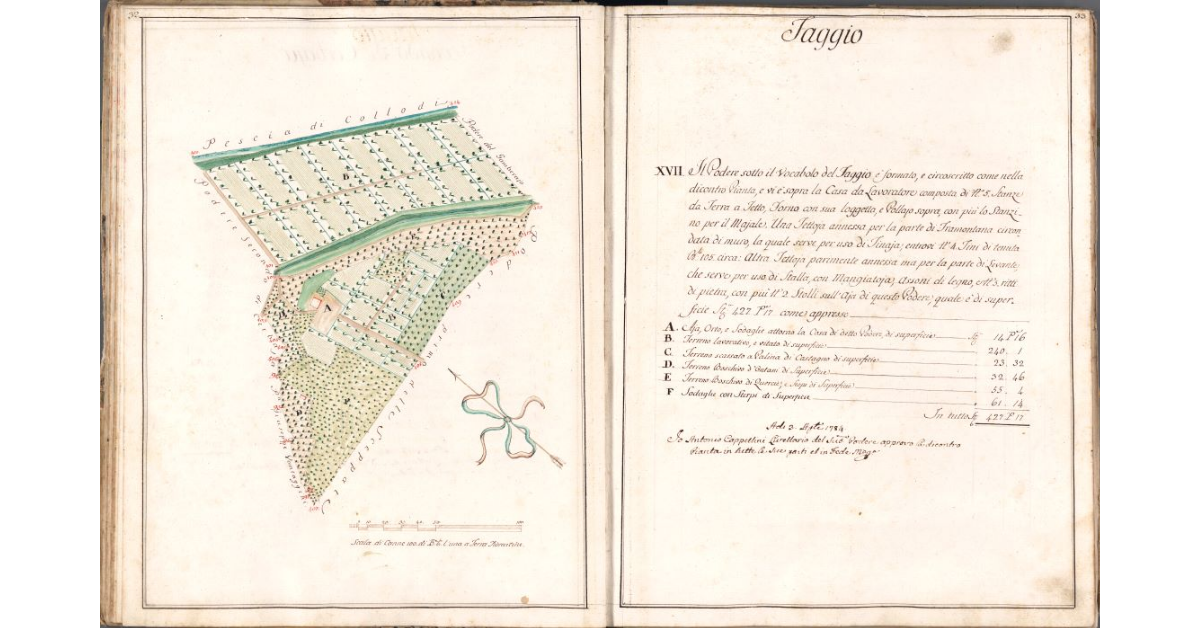 32
Pescia di Collodi
Podere del
Podere
B
A
B
C
Podere
delle
Scala di Canne 100 di Bª 6 l'una a Terra Fiorentina
33
Jaggio
XVII Il Podere sotto il Vocabolo del Jaggio è formato, e circoscritto come nella
dicontro Pianta, e vi è sopra la Casa da Lavoratore composta di Nº 8. Stanze
da Terra a Tetto, Forno con sua loggetta, e Pollajo sopra, con più lo Stanzi-
no per il Majale. Una Tettoja annessa per la parte di Tramontana circon
data di muro, la quale serve per uso di Tinaja; entrovi Nº 4. Tini di tenuta
Bˡⁱ 105. circa: Altra Tettoja parimente annessa ma per la parte di Levante
che serve per uso di Stalla, con Mangiatoja, Arconi di legno, e Nº 3.
di pietra, con più Nº 2. Stolli sull'Aja di questo Podere; quale è di super-
ficie 427. P. 17 come appresso
A. Aja, Orto, e Sodaglie attorno la Casa di detto Podere, di superficie 14 P. 16
B. Terreno lavorativo, e vitato di superficie 240. 1
C. Terreno scassato a Palina di Castagno di superficie 23. 32
D. Terreno Boschivo d'Ontani di Superficie 32. 46
E Terreno Boschivo di Querce, e Stipi di Superficie 55. 4
F Sodaglie con Sterpi di Superficie 61. 14
In tutto 427. P. 17
Adi 2 1784
Io Antonio Cappellini Livellario del Sud.º Podere approvo la dicontro
Pianta in tutte le sue parti et in Fede Mᵒ pᵒ